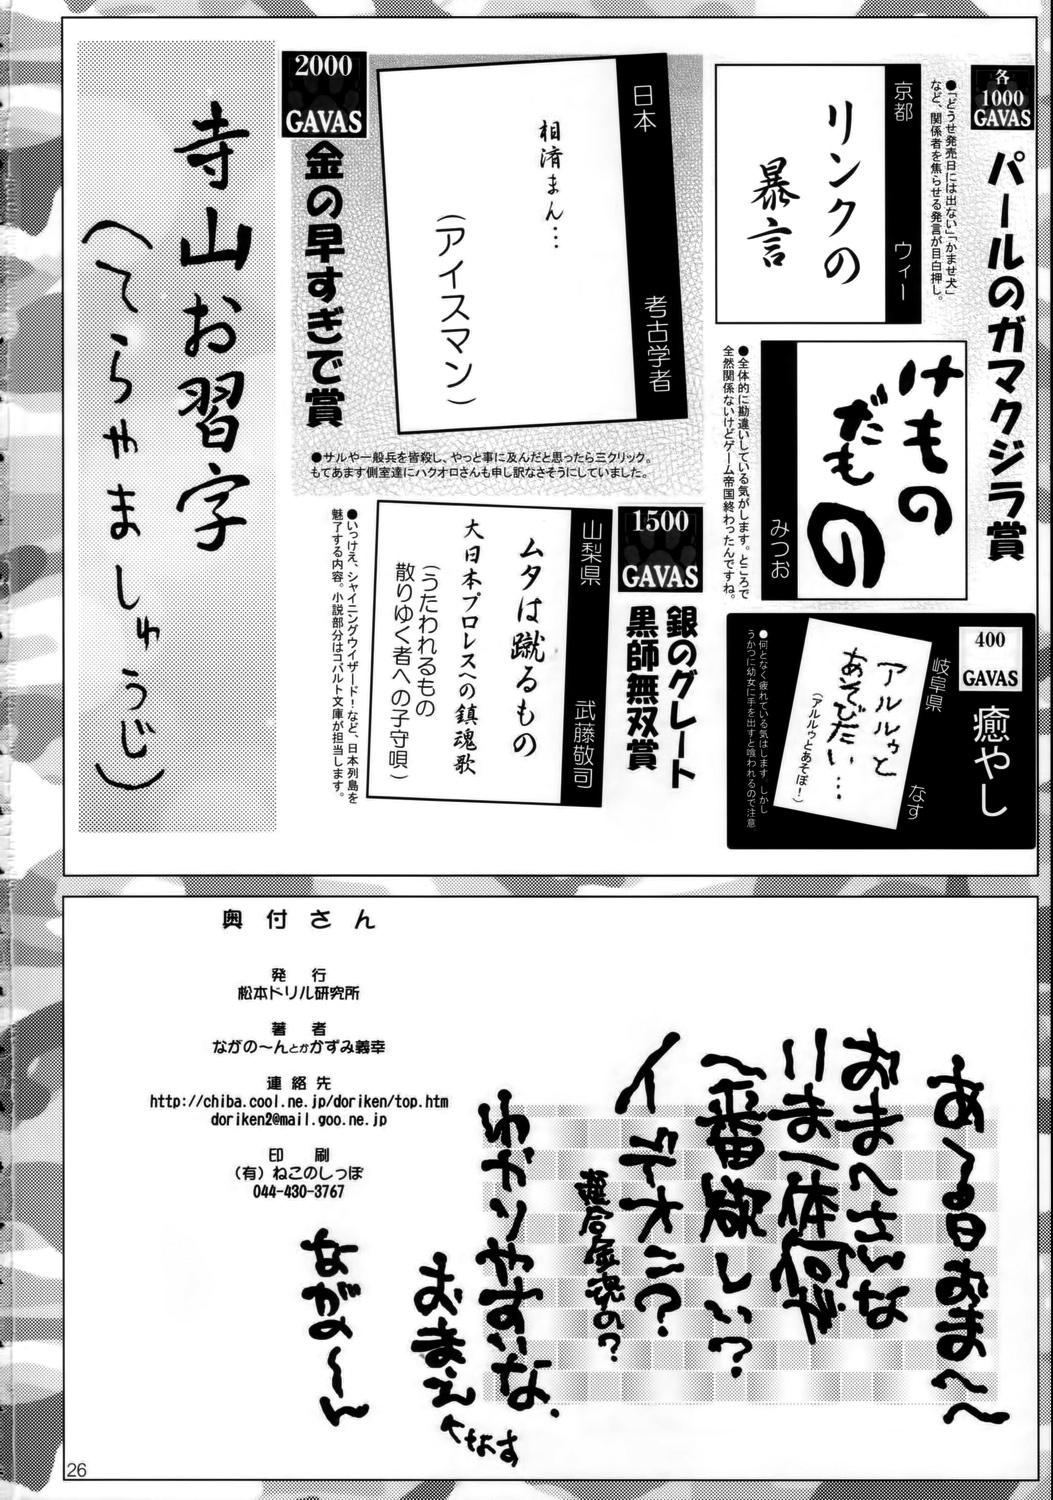 各
1000
GAVAS
パールのガマクジラ賞
京都 ウィー
リンクの
暴言
●「どうせ発売日には出ない」「かませ犬」
など、関係者を焦らせる発言が目白押し。
けもの
だもの
みつお
●全体的に勘違いしている気がします。ところで
全然関係ないけどゲーム帝国終わったんですね。
400
GAVAS
癒やし
岐阜県 なす
アルルゥと
あそびたい…
(アルルゥとあそぼ!)
●何となく疲れている気はします。しかし
うかつに幼女に手を出すと喰われるので注意
2000
GAVAS
金の早すぎで賞
日本 考古学者
相済まん…
(アイスマン)
●サルや一般兵を皆殺し、やっと事に及んだと思ったら三クリック。
もてあます側室達にハクオロさんも申し訳なさそうにしていました。
1500
GAVAS
銀のグレート
黒師無双賞
山梨県 武藤敬司
ムタは蹴るもの
大日本プロレスへの鎮魂歌
(うたわれるもの
散りゆく者への子守唄)
●いっけえ、シャイニングウィザード!など、日本列島を
魅了する内容。小説部分はコバルト文庫が担当します。
寺山お習字
(てらやましゅうじ)
奥付さん
発行
松本ドリル研究所
著者
ながの〜んとかかずみ義幸
連絡先
http://chiba.cool.ne.jp/doriken/top.htm
doriken2@mail.goo.ne.jp
印刷
(有)ねこのしっぽ
044-430-3767
ある日おまへ〜
おまへさんな
いま一体何が
一番欲しい?
イデオン?
超合金魂の?
わかりやすいな、
おまえ
へなす
ながの〜ん
26